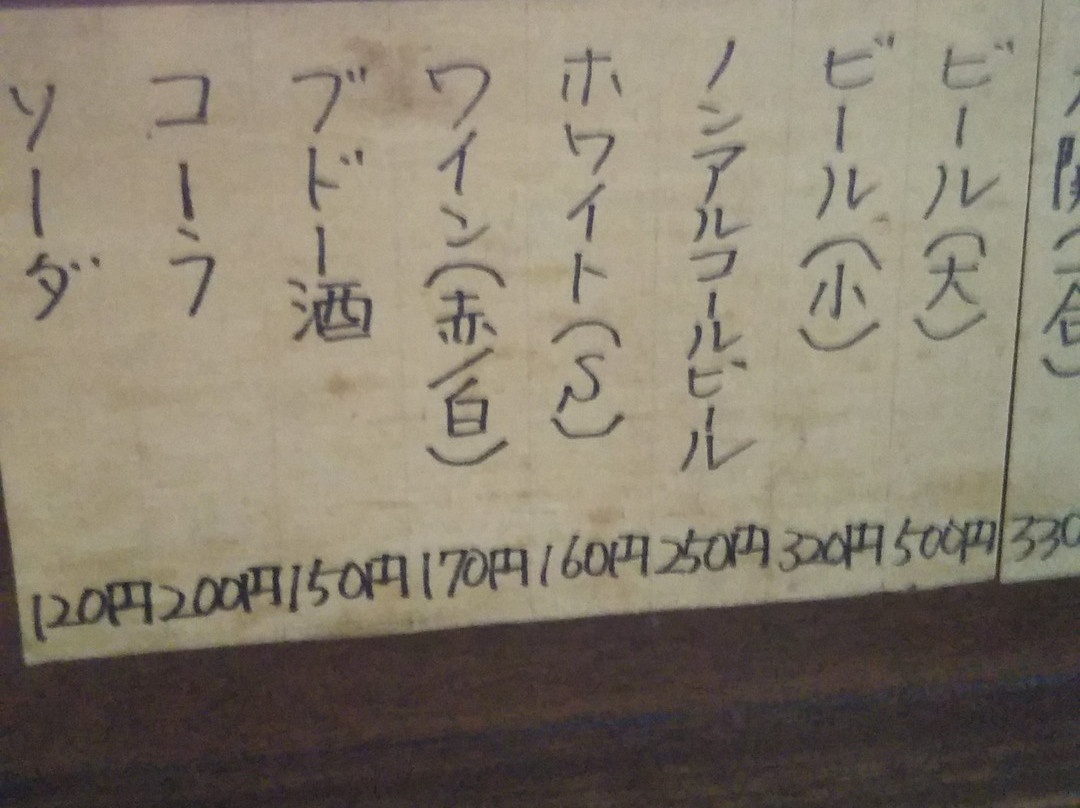 ビール(大) 500円
ビール(小) 320円
ノンアルコールビール 250円
ホワイト(S) 160円
ワイン(赤/白) 170円
ブドー酒 150円
コーラ 200円
ソーダ 120円